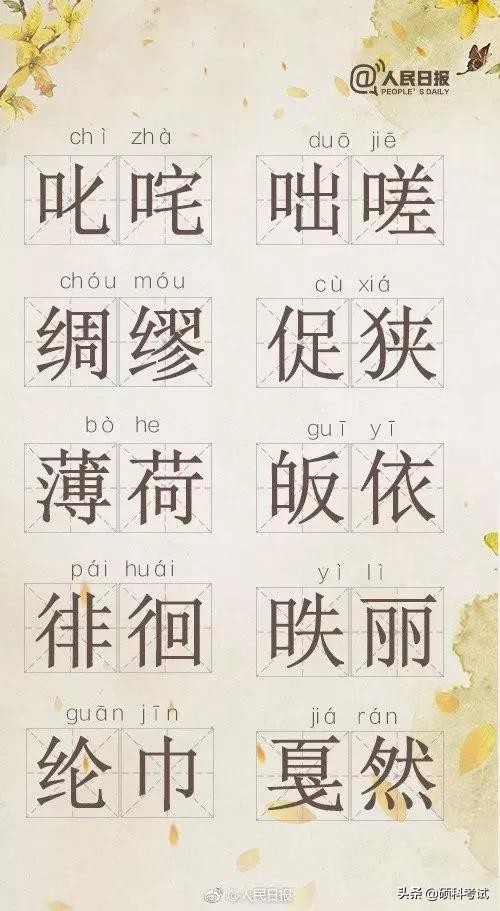 @人民日报
PEOPLE'S DAILY
chì zhà duō jiē
叱咤 咄嗟
chóu móu cù xiá
绸缪 促狭
bò he guī yī
薄荷 皈依
pái huái yì lì
徘徊 昳丽
guān jīn jiá rán
纶巾 戛然
@人民日报
头条 @硕科考试